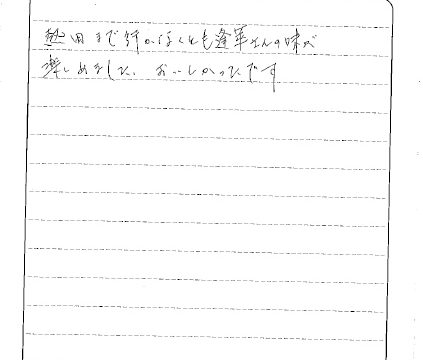 秋田まで行かなくとも蓬莱さんの味が
楽しめました。おいしかったです